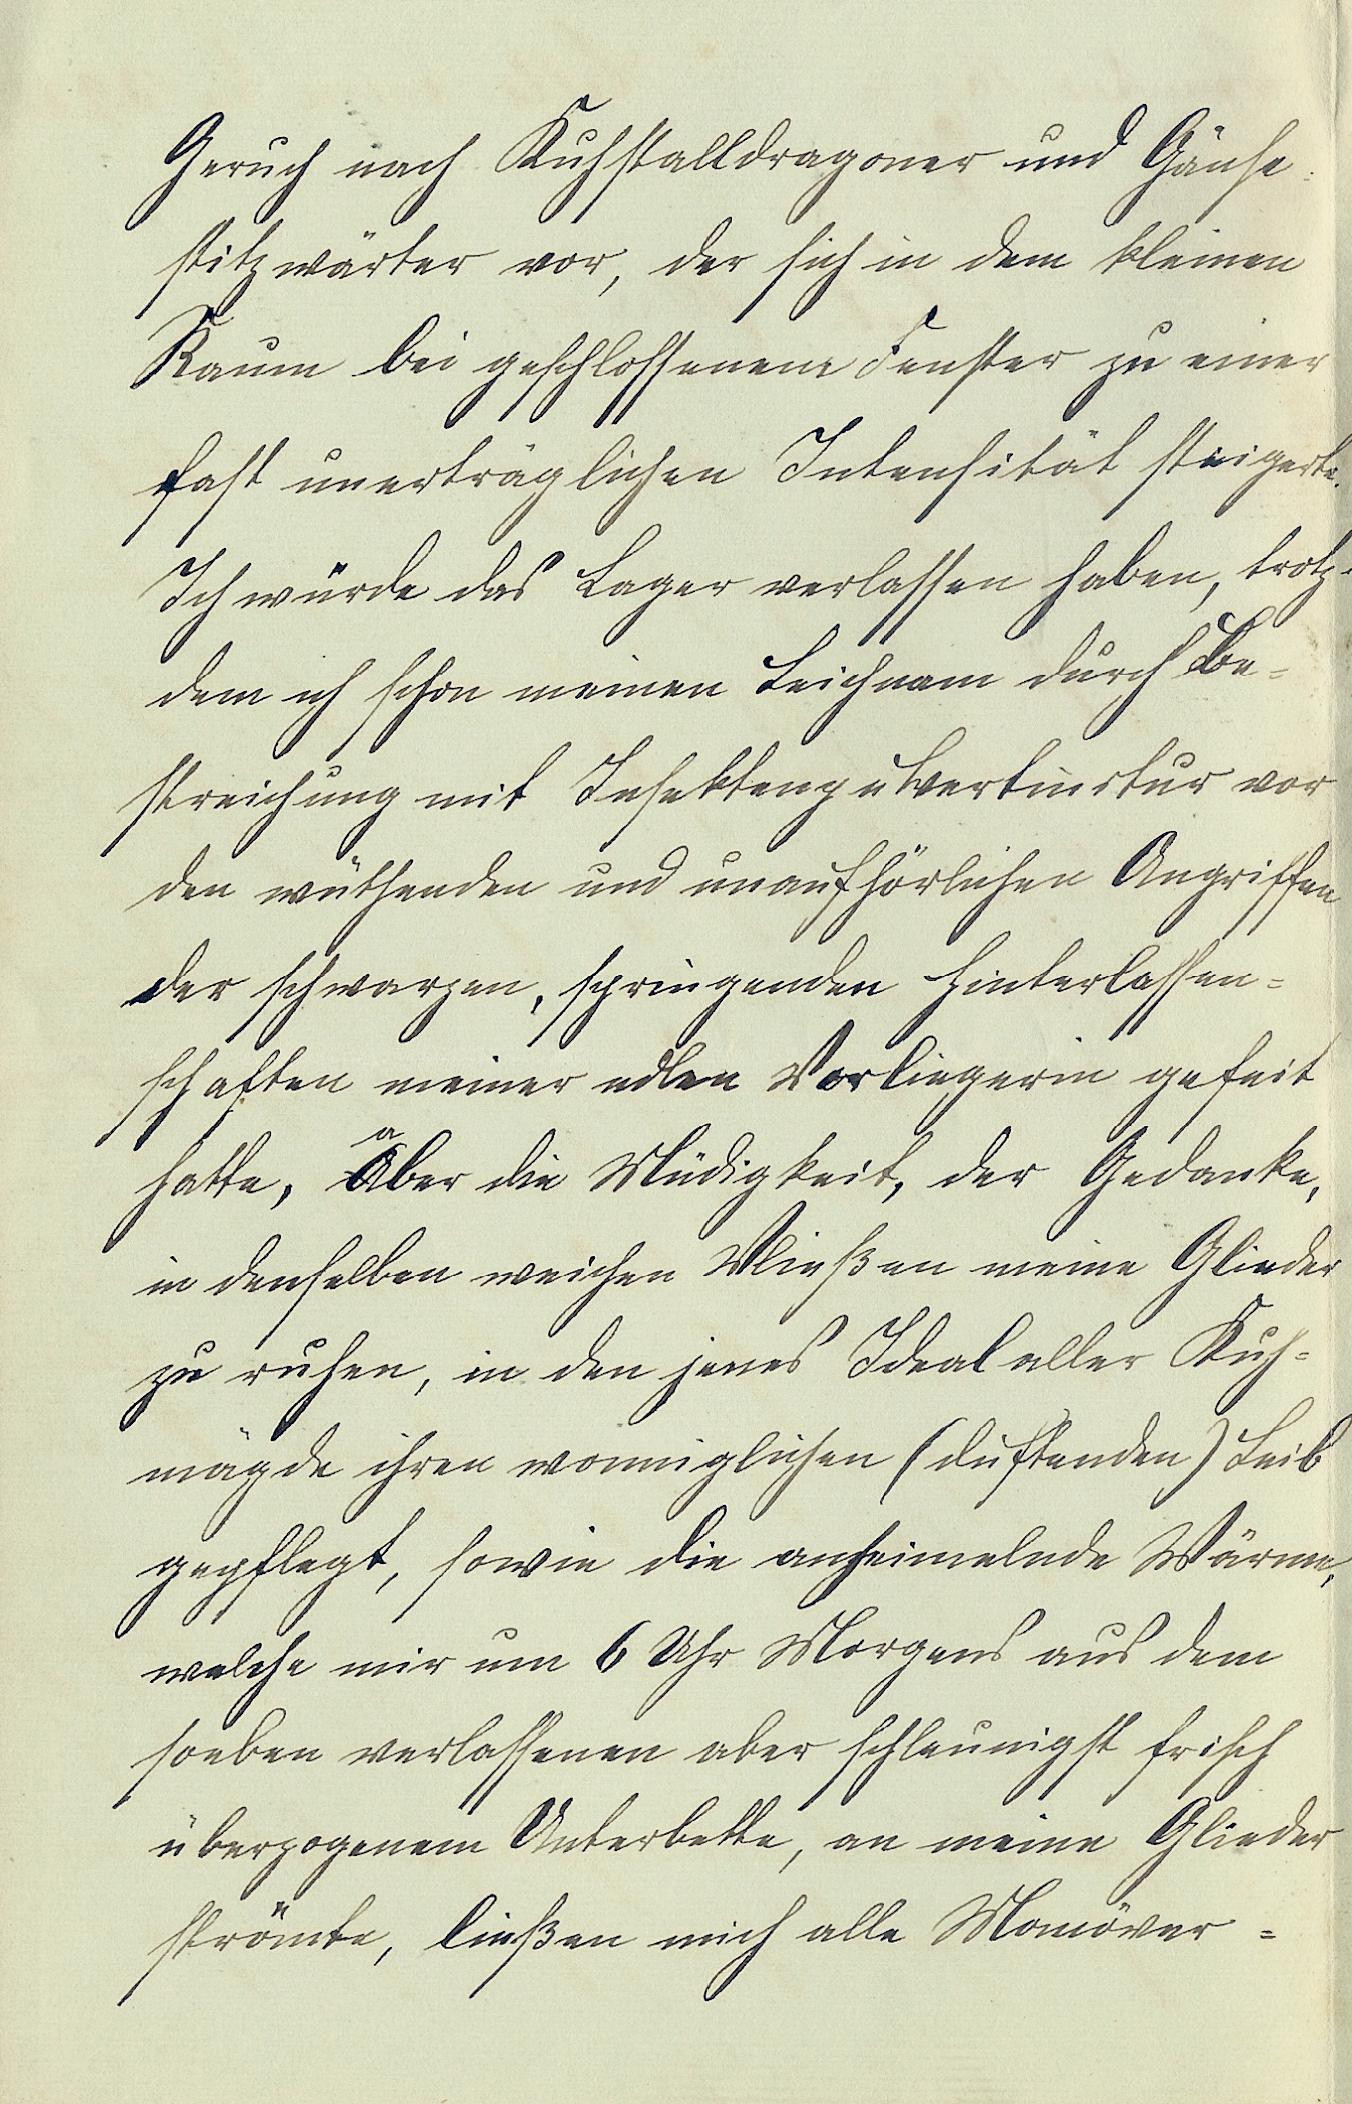 Geruch nach Kuhstalldragoner und Gänse-
stitzwärter vor, der sich in dem kleinen
Raum bei geschlossenem Fenster zu einer
fast unerträglichen Intensität steigerte.
Ich würde das Lager verlassen haben, trotz-
dem ich schon meinen Leichnam durch Be-
streichung mit Insektenpulvertinktur vor
den wüthenden und unaufhörlichen Angriffen
der schwarzen, springenden Hinterlassen-
schaften meiner edlen Vorliegerin gefeit
hatte, aber die Müdigkeit, der Gedanke,
in denselben weichen Vließen meine Glieder
zu ruhen, in den jenes Ideal aller Kuh-
mägde ihren wonniglichen (duftenden) Leib
gepflegt, sowie die anheimelnde Wärme,
welche mir um 6 Uhr Morgens aus dem
soeben verlassenen aber schleunigst frisch
überzogenem Unterbette, an meine Glieder
strömte, ließen mich alle Manöver-